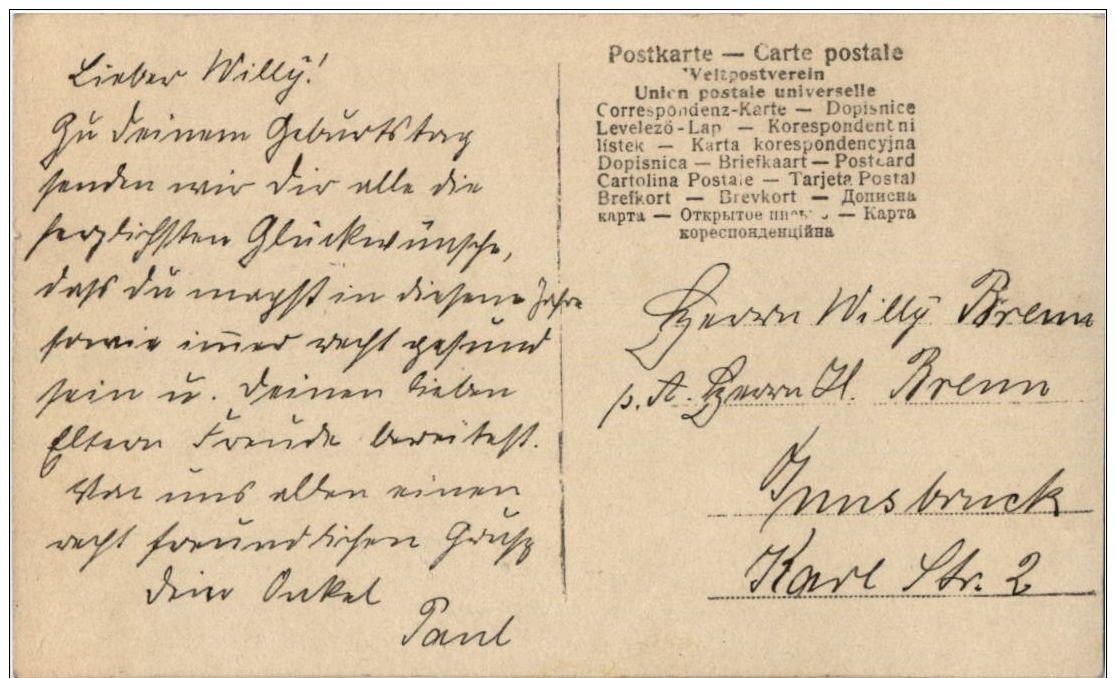 Lieber Willy!
Zu deinem Geburtstag
senden wir dir alle die
herzlichsten Glückwünsche,
dass du magst in diesem Jahre
sowie im̅er recht gesund
sein u. deinen lieben
Eltern Freude bereitest.
Von uns allen einen
recht freundlichen Gruß
dein Onkel
Paul
Postkarte — Carte postale
Weltpostverein
Union postale universelle
Correspondenz-Karte — Dopisnice
Levelező-Lap — Korespondentni
lístek — Karta korespondencyjna
Dopisnica — Briefkaart — Postcard
Cartolina Postale — Tarjeta Postal
Brefkort — Brevkort — Дописна
карта — Открытое — Карта
кореспонденційна
Herrn Willy Brenn
p. A. Herrn H. Brenn
Innsbruck
Karl Str. 2